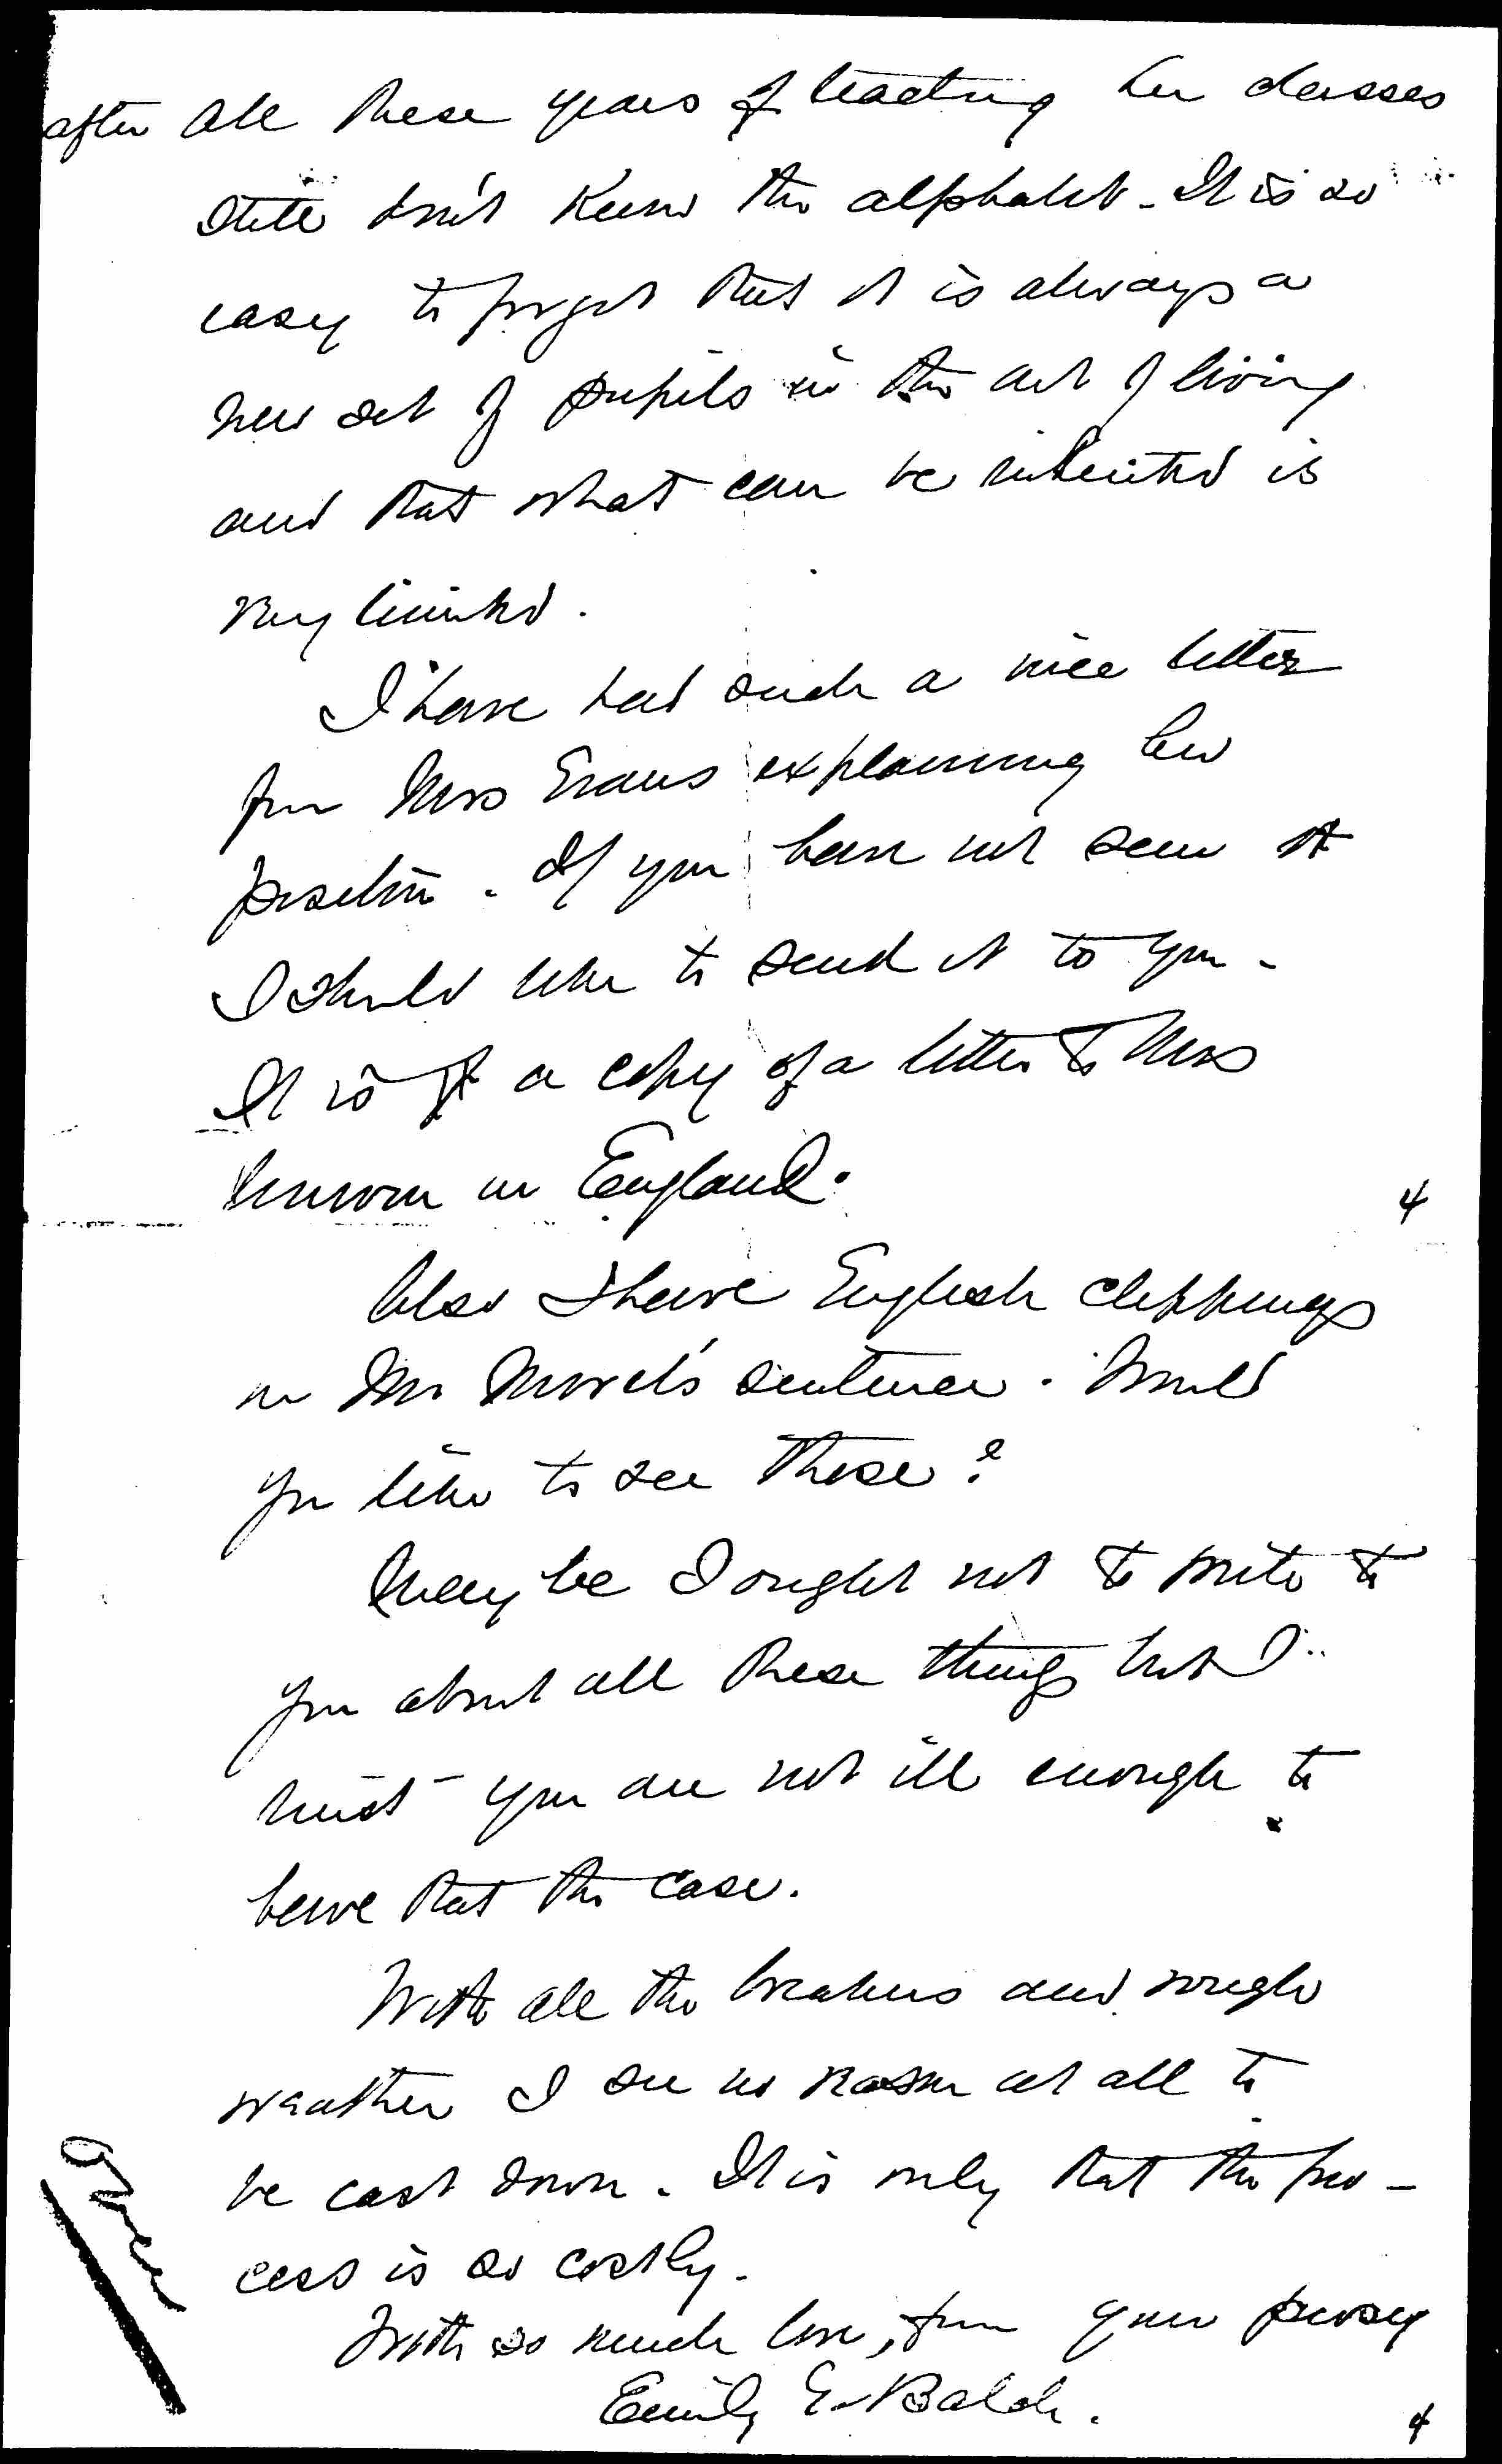 after all these years of teaching her classes
still don't know the alphabet. It is so
easy to forget that it is always a
new set of pupils in the art of living
and that what can be inherited is
very limited.
I have had such a nice letter
from Mrs Evans explaining her
position. If you have not seen it
I should like to send it to you.
It is a copy of a letter to Mrs
in England.
4
Also I have English clippings
on Mr Morel's sentence. Would
you like to see these?
Maybe I ought not to write to
you about all these things but I
trust you are not ill enough to
have that the case.
With all the breakers and rough
weather I see no reason at all to
be cast down. It is only that the pro-
cess is so costly.
With so much love, from your pussy
Emily G. Balch.
Over
4